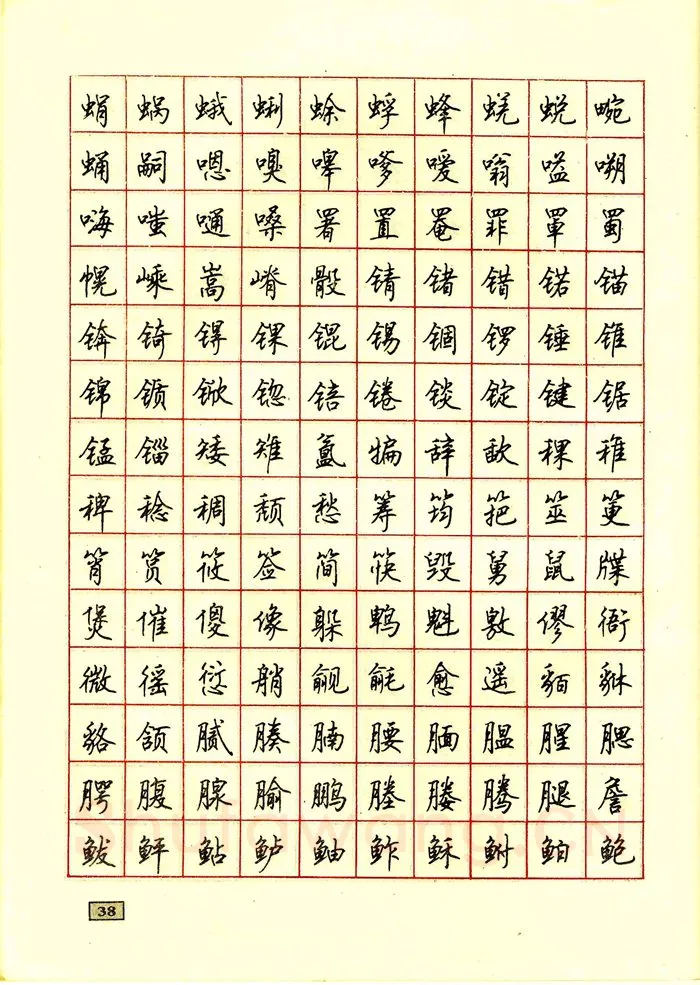 蜎蜗蛾蜊蜍蜉蜂蜣蜕畹
蛹嗣嗯嗅嗥嗲嗳嗡嗌嗍
嗨嗤嗵嗓署置罨罪罩蜀
幌嵊嵩嵴骰锖锗错锘锚
锛锜锝锞锟锡锢锣锤锥
锦锧锨锪锫锩锬锭键锯
锰锱矮雉氲犏辞歃稞稚
稗稔稠颓愁筹筠筢筮筻
筲筼筱签简筷毁舅鼠牒
煲催傻像躲鹎魁敫僇衙
微徭愆艄觎毹愈遥貊貅
貉颔腻腠腩腰腼腽腥腮
腭腹腺腧鹏塍媵腾腿詹
shufawang.CN
鲅鲆鲇鲈鲉鲊稣鲋鲌鲍
38